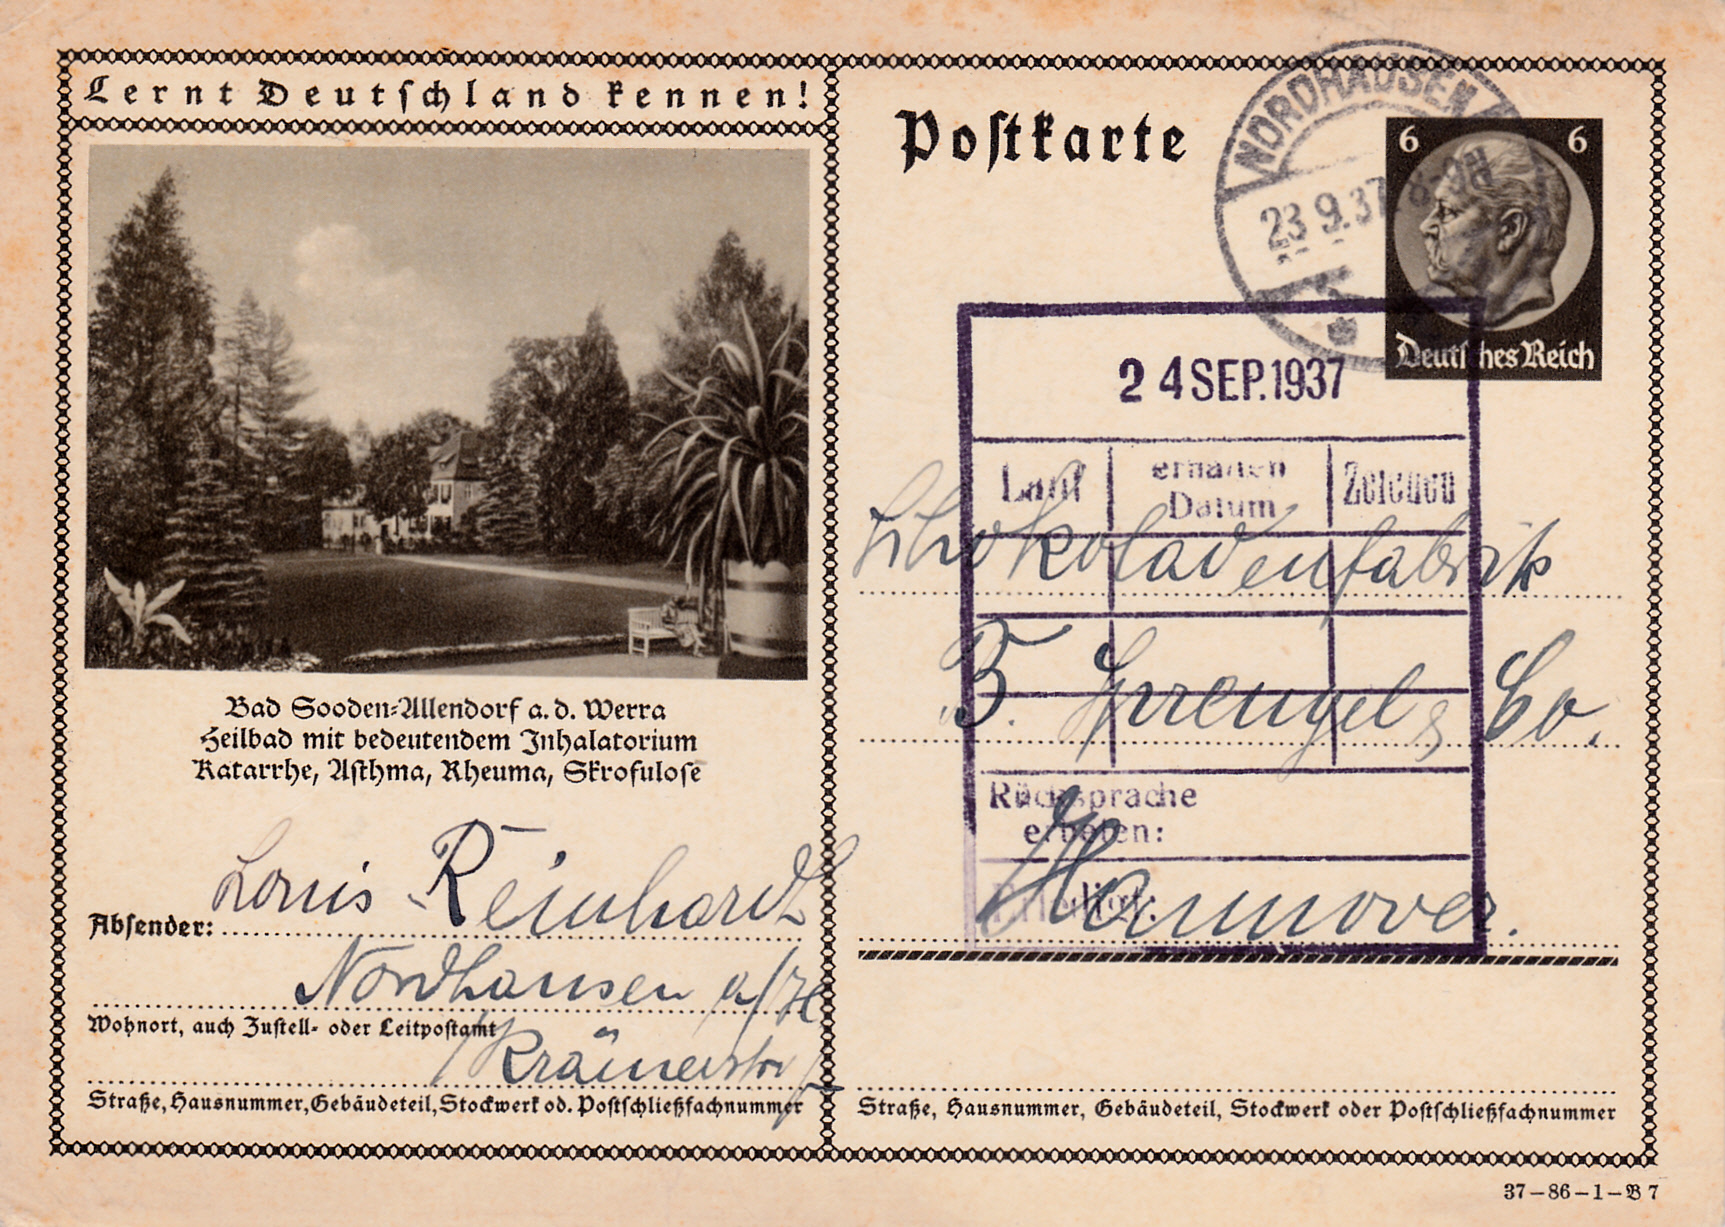 Lernt Deutschland kennen!
Bad Sooden-Allendorf a. d. Werra
Heilbad mit bedeutendem Inhalatorium
Katarrhe, Asthma, Rheuma, Skrofulose
Absender: Louis Reinhardt
Nordhausen a/H
Wohnort, auch Zustell- oder Leitpostamt
Krämerstr
Straße, Hausnummer, Gebäudeteil, Stockwerk od. Postschließfachnummer
Postkarte
NORDHAUSEN
23.9.37
6 6
Deutsches Reich
24 SEP. 1937
erhalten
Datum
Zeichen
Schokoladenfabrik
B. Sprengel & Co.
Rücksprache
erbeten:
Hannover.
Straße, Hausnummer, Gebäudeteil, Stockwerk oder Postschließfachnummer
37-86-1-B 7